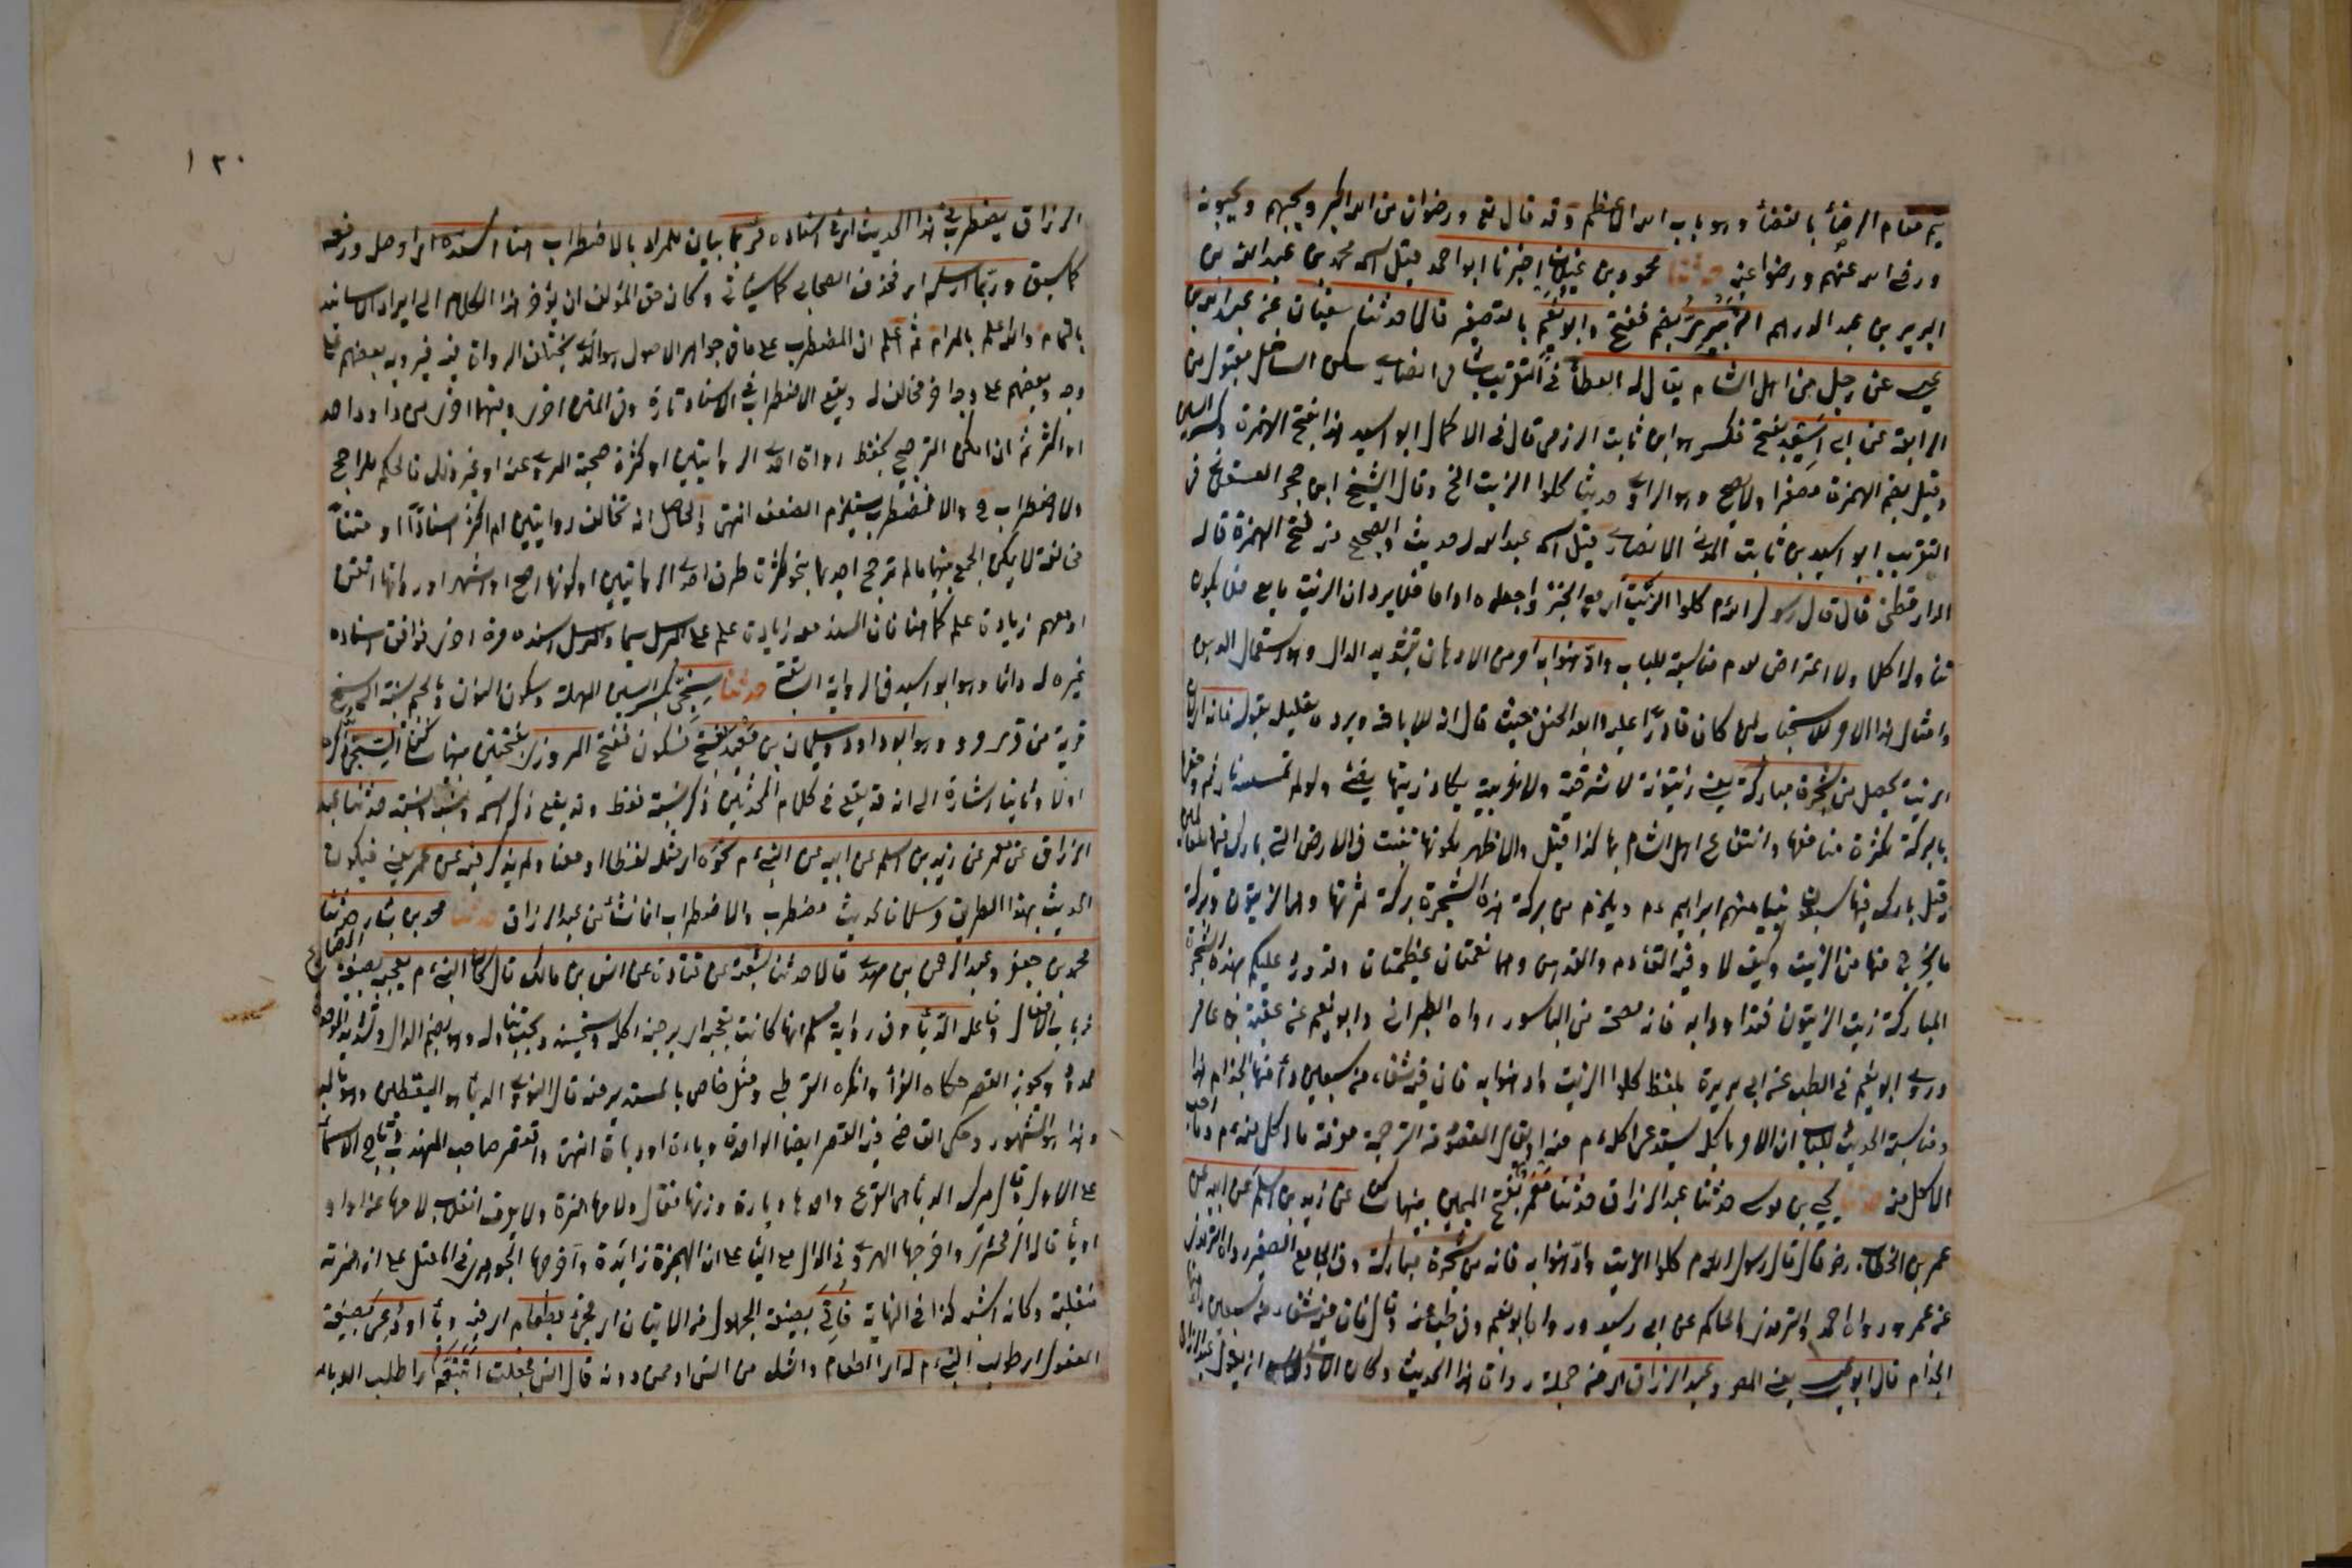 يتم مقام الرضأ بالقضأ وهو باب الله الاعظم وقد قال تع ورضوان من الله اكبر ويحبهم ويحبونه
ورضى الله عنهم ورضوا عنه حدثنا محمود بن غيلان اخبرنا ابو احمد قيل اسمه محمد بن عبد الله بن
الزبير بن عبد الدرهم الزبيرى بضم ففتح وابو نعيم بالتصغير قالا حدثنا سفيان عن عبد الله بن
عيسى عن رجل من اهل الشام يقال له عطأ فى التقريب شامى انصارى سكن الساحل مقبول من
الرابعة عن ابى اسيد بفتح فكسر هو ابن ثابت الزرقى قال فى الاكمال ابو اسيد هذا بفتح الهمزة وكسر السين
وقيل بضم الهمزة مصغرا ولا يصح وهو الراوى حديث كلوا الزيت الخ وقال الشيخ ابن حجر العسقلانى فى
التقريب ابو اسيد بن ثابت المدنى الانصارى قيل اسمه عبد الله له حديث والصحيح فيه فتح الهمزة قاله
الدارقطنى قال قال رسول الله م كلوا الزيت اى مع الخبز واجعلوه اداما فلا يرد ان الزيت مايع فلا يكون
تناوله اكلا ولا اعتراض لعدم مناسبة للباب وادهنوا به امر من الادهان بتشديد الدال وهو استعمال الدهن
وامثال هذا الامر للاستحباب لمن كان قادرا عليه وابعد الحنفى حيث قال انه للاباحة ويرده تعليله بقوله فانه اى لان
الزيت يحصل من شجرة مباركة يعنى زيتونة لا شرقية ولا غربية يكاد زيتها يضئ ولو لم تمسسه نار ثم وصفها
بالبركة لكثرة منافعها وانتفاع اهل الشام بها كذا قيل والاظهر لكونها تنبت فى الارض التى بارك فيها للعالمين
وقيل بارك فيها سبعون نبيا منهم ابراهيم ءم ويلزم من بركة هذه الشجرة بركة ثمرتها وهى الزيتون وبركة
ما يخرج منها من الزيت وكيف لا وفيه التأدم والتدهن وهما نعمتان عظيمتان وقد ورد عليكم بهذه الشجرة
المباركة زيت الزيتون فتداووا به فانه مصحة من الباسور رواه الطبرانى وابو نعيم عن عقبة بن عامر
وروى ابو نعيم فى الطب عن ابى هريرة بلفظ كلوا الزيت وادهنوا به فان فيه شفاء من سبعين دأ منها الجذام هذا
ومناسبة الحديث للباب ان الامر باكله يستدعى اكله ءم منه او يقال المقصود من الترجمة معرفة ما اكل منه ءم وما احب
الاكل منه حدثنا يحيى بن موسى حدثنا عبد الرزاق حدثنا معمر بفتح الميمين بينهما ساكن عن زيد بن اسلم عن ابيه عن
عمر بن الخطاب رضى قال قال رسول الله م كلوا الزيت وادهنوا به فانه من شجرة مباركة وفى الجامع الصغير رواه الترمذى
عن عمر ورواه احمد والترمذى والحاكم عن ابى رسيد ورواه ابو نعيم فى طب عنه وقال فان فيه شفاء من سبعين داء منها
الجذام قال ابو عيسى يعنى المص وعبد الرزاق اى من جملة رواة هذا الحديث وكان الاولى ان يقول عبد الرزاق
١٣٠
الرزاق يضطرب فى هذا الحديث اى فى اسناده فربما بيان للمراد بالاضطراب هنا اسنده اى اوصل ورفعه
كما سبق وربما ارسله اى فحذف الصحابى كما سيأتى وكان حق المؤلف ان يؤخر هذا الكلام الى ايراد الاسانيد
بالتمام والله اعلم بالمرام ثم اعلم ان المضطرب على ما فى جواهر الاصول هو الذى يختلف الرواة فيه فيرويه بعضهم على
وجه وبعضهم على وجه اخر مخالف له ويقع الاضطراب فى الاسناد تارة وفى المتن اخرى وبهما اخرى من واحد
او اكثر ثم ان امكن الترجيح بحفظ رواة احدى الروايتين او كثرة صحبة المروى عنه او غير ذلك فالحكم للراجح
ولا اضطراب ح والا فمضطرب يستلزم الضعف انتهى والحاصل انه تخالف روايتين او اكثر اسنادًا او متنًا
مخالفة لا يمكن الجمع بينهما ما لم ترجح احديهما بنحو كثرة طرق احدى الروايتين او كونها اصح او اشهر او رواتها اتقن
او معهم زيادة علم كما هنا فان المسند معه زيادة علم على المرسل سيما والمرسل اسنده مرة اخرى فوافق اسناده
غيره له دائما وهو ابو اسيد فى الرواية السابقة حدثنا السنجى بكسر السين المهملة وسكون النون والجيم نسبة الى سنج
قرية من قرى مرو وهو ابو داود وسليمان بن معبد بفتح فسكون ففتح المروزى بفتحتين بينهما ساكن السنجى ذكره
اولا وثانيا اشارة الى انه قد يقع فى كلام المحدثين ذكر نسبته فقط وقد يقع ذكر اسمه ونسبه ونسبته حدثنا عبد
الرزاق عن معمر عن زيد بن اسلم عن ابيه عن النبى ءم نحوه اى مثله لفظا او معنا ولم يذكر فيه عن عمر يعنى فيكون
الحديث بهذا الطريق مرسلا فالحديث مضطرب والاضطراب انما نشأ من عبد الرزاق حدثنا محمد بن بشار حدثنا
محمد بن جعفر وعبد الرحمن بن مهدى قالا حدثنا شعبة عن قتادة عن انس بن مالك قال كان النبى ءم يعجبه بصيغة المضارع
من باب الافعال وفاعله الدبأ وفى رواية مسلم انها كانت تعجبه اى يرضيه اكله ويستحسنه ويحب تناوله وهو بضم الدال وتشديد الموحدة
ممدود ويجوز القصر حكاه القزاز وانكره القرطبى ومثل خاص بالمستدير منه قال النووى الدبأ هو اليقطين وهو بالمد
وهذا هو المشهور وحكى القاضى فيه القصر ايضا الواحدة دباءة او دباة انتهى واقتصر صاحب المهذب وتاج الاسمأ
على الاول وقال ميرك الدبأ هى القرع واحدها دباءة وزنها فعال ولامها همزة ولا يعرف انقلاب لامها عن واو
او يأ قاله الزمخشرى واخرجها الهروى فى الدال مع البأ على ان الهمزة زائدة واخرجها الجوهرى فى المعتل على ان همزته
منقلبة وكانه اشبه كذا فى النهاية فاتى بصيغة المجهول من الاتيان اى فجئ بطعام اى فيه دبأ او دعى بصيغة
المفعول اى طلب النبى ءم له اى الطعام والشك من انس او ممن دونه قال انس فجعلت اتتبعه اى اطلب الدباء